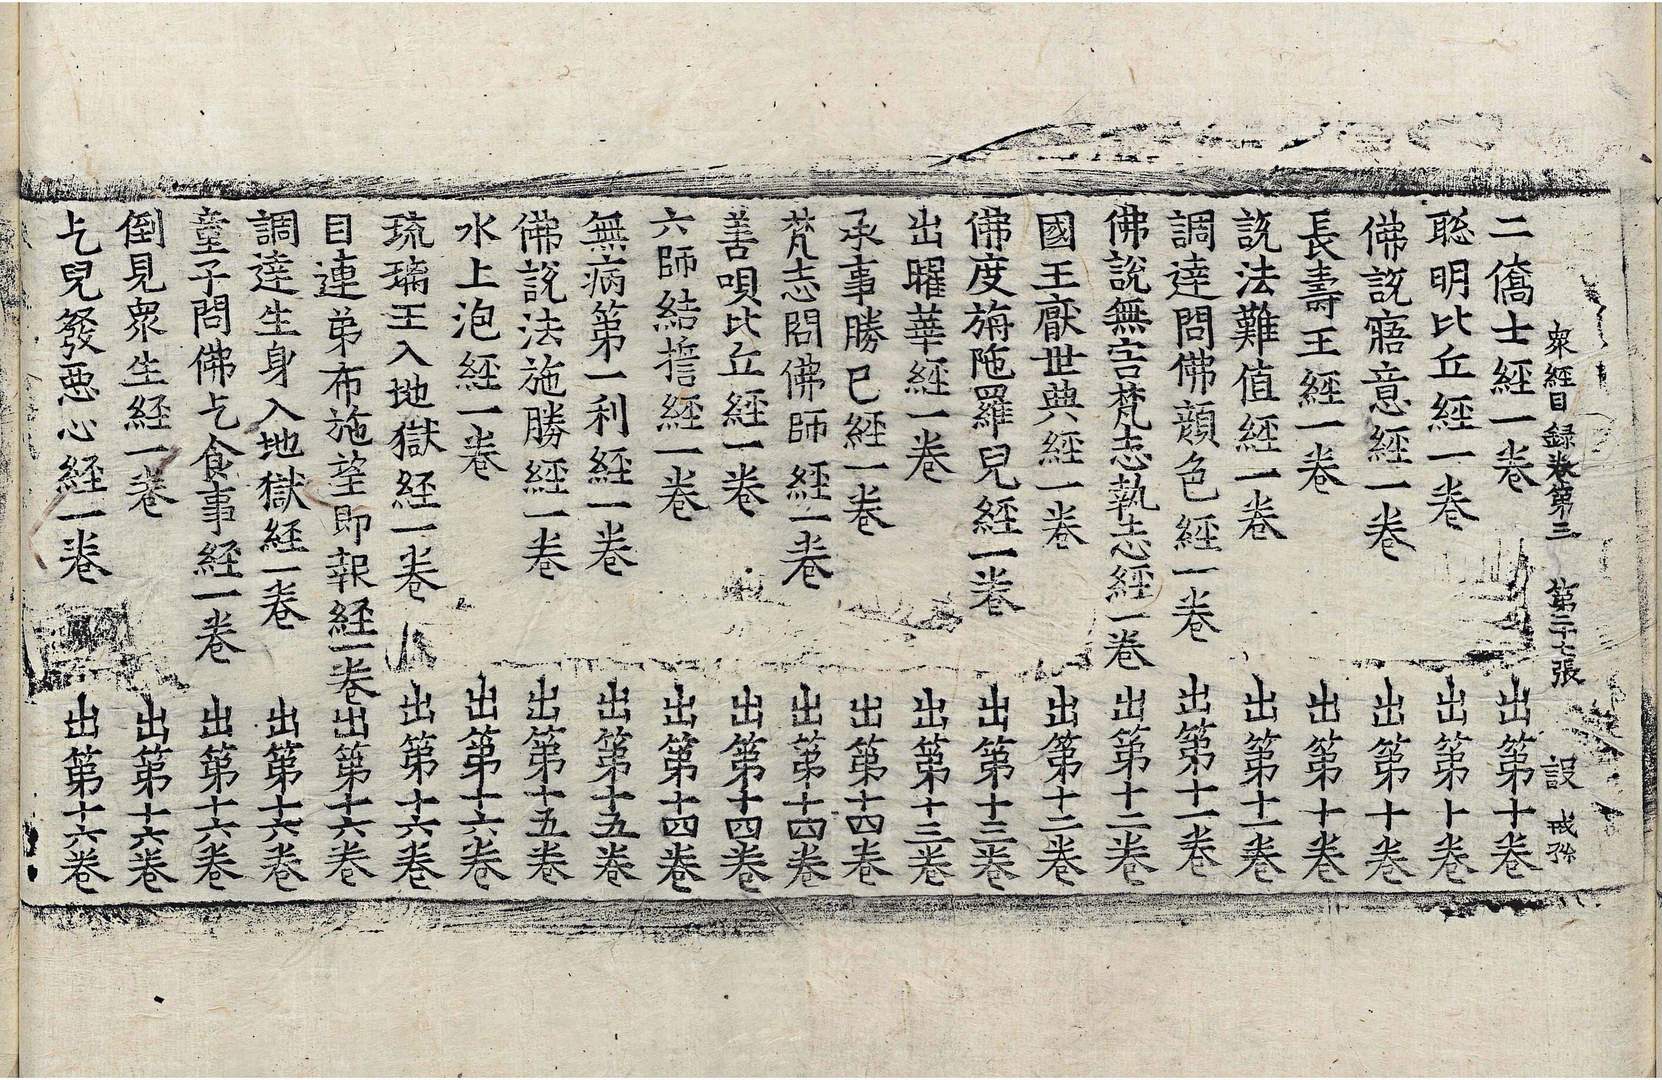 衆經目録卷第三　第二十七張　設　戒珎
二僑士經一卷　出第十卷
聡明比丘經一卷　出第十卷
佛説寤意經一卷　出第十卷
長壽王經一卷　出第十卷
説法難值經一卷　出第十一卷
調達問佛顔色經一卷　出第十一卷
佛說無害梵志執志經一卷　出第十二卷
國王厭世典經一卷　出第十二卷
佛度旃陁羅兒經一卷　出第十三卷
出曜華經一卷　出第十三卷
承事勝己經一卷　出第十四卷
梵志問佛師經一卷　出第十四卷
善唄比丘經一卷　出第十四卷
六師結誓經一卷　出第十四卷
無病第一利經一卷　出第十五卷
佛說法施勝經一卷　出第十五卷
水上泡經一卷　出第十六卷
琉璃王入地獄經一卷　出第十六卷
目連弟布施望即報經一卷　出第十六卷
調達生身入地獄經一卷　出第十六卷
童子問佛乞食事經一卷　出第十六卷
倒見衆生經一卷　出第十六卷
乞兒發惡心經一卷　出第十六卷